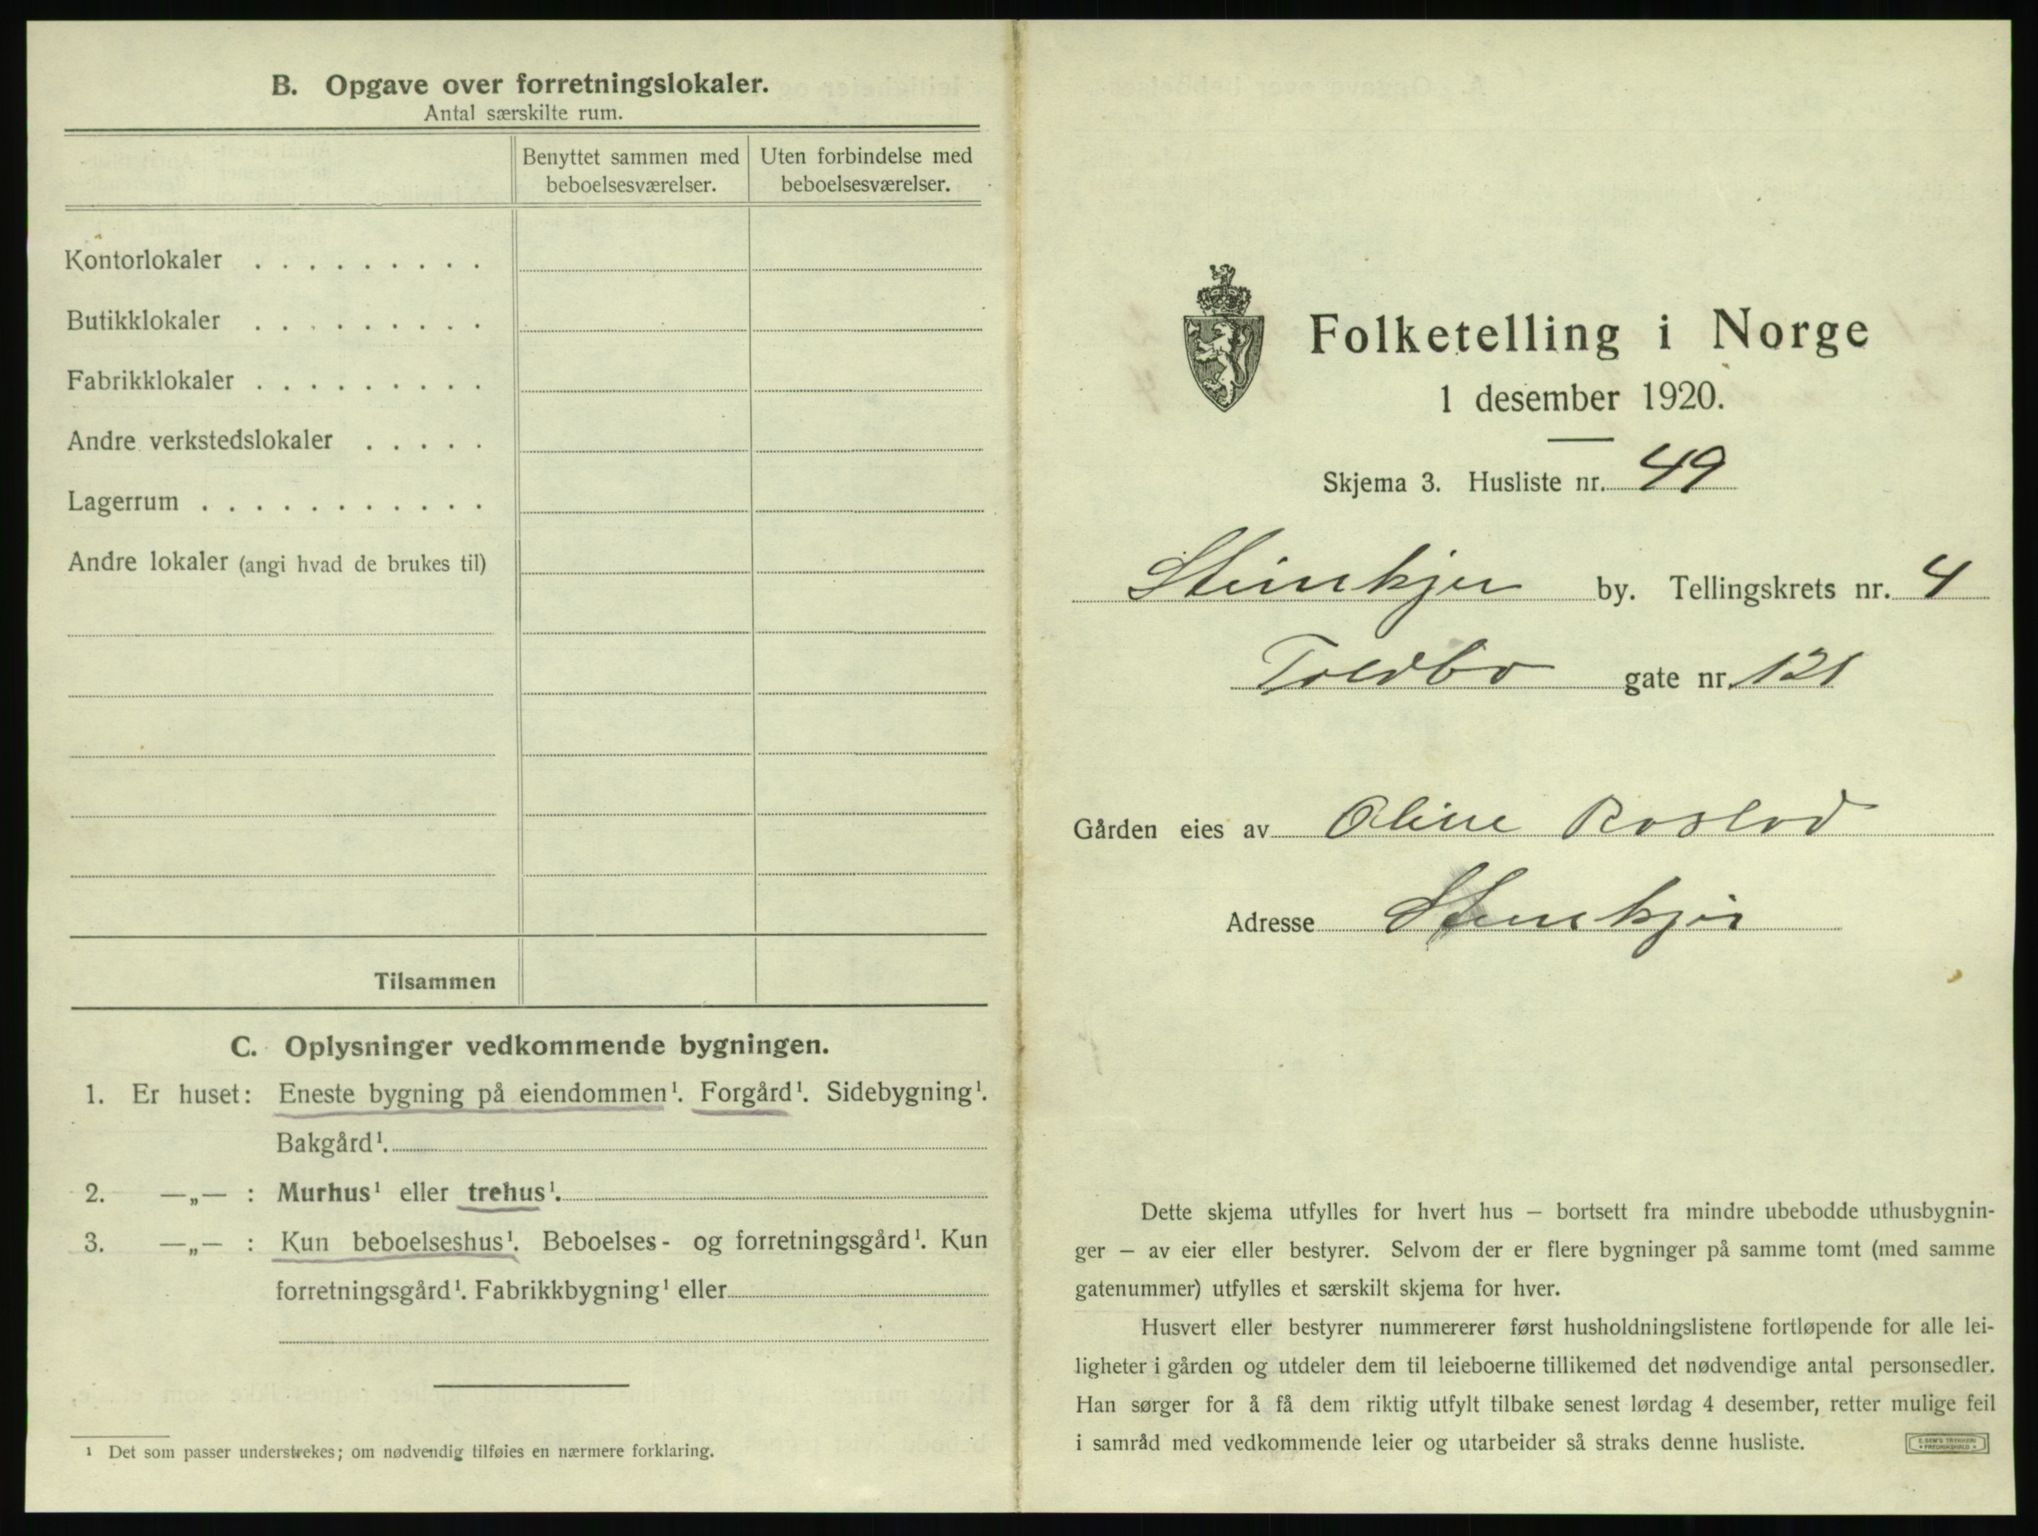 B. Opgave over forretningslokaler.
Antal særskilte rum.
Benyttet sammen med beboelsesværelser.
Uten forbindelse med beboelsesværelser.
Kontorlokaler . . . . . . . . .
Butikklokaler . . . . . . . . .
Fabrikklokaler . . . . . . . . .
Andre verkstedslokaler . . . . .
Lagerrum . . . . . . . . . . .
Andre lokaler (angi hvad de brukes til)
Tilsammen
C. Oplysninger vedkommende bygningen.
1. Er huset: Eneste bygning på eiendommen¹. Forgård¹. Sidebygning¹.
Bakgård¹.
2. —„— : Murhus¹ eller trehus¹.
3. —„— : Kun beboelseshus¹. Beboelses- og forretningsgård¹. Kun
forretningsgård¹. Fabrikkbygning¹ eller
¹ Det som passer understrekes; om nødvendig tilføies en nærmere forklaring.
Folketelling i Norge
1 desember 1920.
Skjema 3. Husliste nr. 49
Steinkjer by. Tellingskrets nr. 4
Toldbo gate nr. 121
Gården eies av Oline Roslod
Adresse Stenkjær
Dette skjema utfylles for hvert hus — bortsett fra mindre ubebodde uthusbygnin-
ger — av eier eller bestyrer. Selvom der er flere bygninger på samme tomt (med samme
gatenummer) utfylles et særskilt skjema for hver.
Husvert eller bestyrer nummererer først husholdningslistene fortløpende for alle lei-
ligheter i gården og utdeler dem til leieboerne tillikemed det nødvendige antal personsedler.
Han sørger for å få dem riktig utfylt tilbake senest lørdag 4 desember, retter mulige feil
i samråd med vedkommende leier og utarbeider så straks denne husliste.